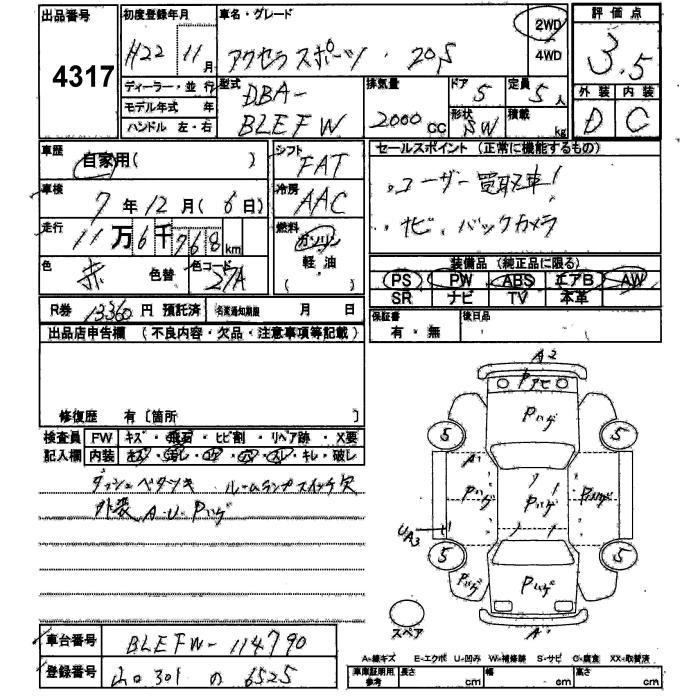 出品番号
4317
初度登録年月
H22年11月
車名・グレード
アクセラスポーツ・20S
2WD
4WD
評価点
3.5
外装 内装
D C
ディーラー・並行
モデル年式 年
ハンドル 左・右
型式
DBA-
BLEFW
排気量
2000cc
ドア 5
形状 SW
定員 5人
積載 kg
車歴
自家用( )
車検
7年12月(6日)
走行
11万6千768km
色
赤 色替
色コード
27A
シフト
FAT
冷房
AAC
燃料
ガソリン
軽油
( )
セールスポイント (正常に機能するもの)
ユーザー買取車!
ナビ、バックカメラ
装備品 (純正品に限る)
PS PW ABS エアB AW
SR ナビ TV 本革
R券 13360円 預託済
月 日
保証書
有・無
後日品
出品店申告欄 (不良内容・欠品・注意事項等記載)
修復歴 有〔箇所 〕
検査員 FW キズ・飛石・ヒビ割・リペア跡・X要
記入欄 内装 キズ・キレ・破レ
ダッシュベタツキ ルームランプスイッチ欠
外装 A・U・Pハゲ
A2
Pアセ
Pハゲ
5 5
A1
Pハゲ Pハゲ Pハゲ
UA3
5 5
Pハゲ Pハゲ Pハゲ
スペア
車台番号 BLEFW-114790
登録番号 山口 301 の 6525
A=線キズ E=エクボ U=凹み W=補修跡 S=サビ C=腐食 XX=取替済
車庫証明用参考 長さ cm 幅 cm 高さ cm